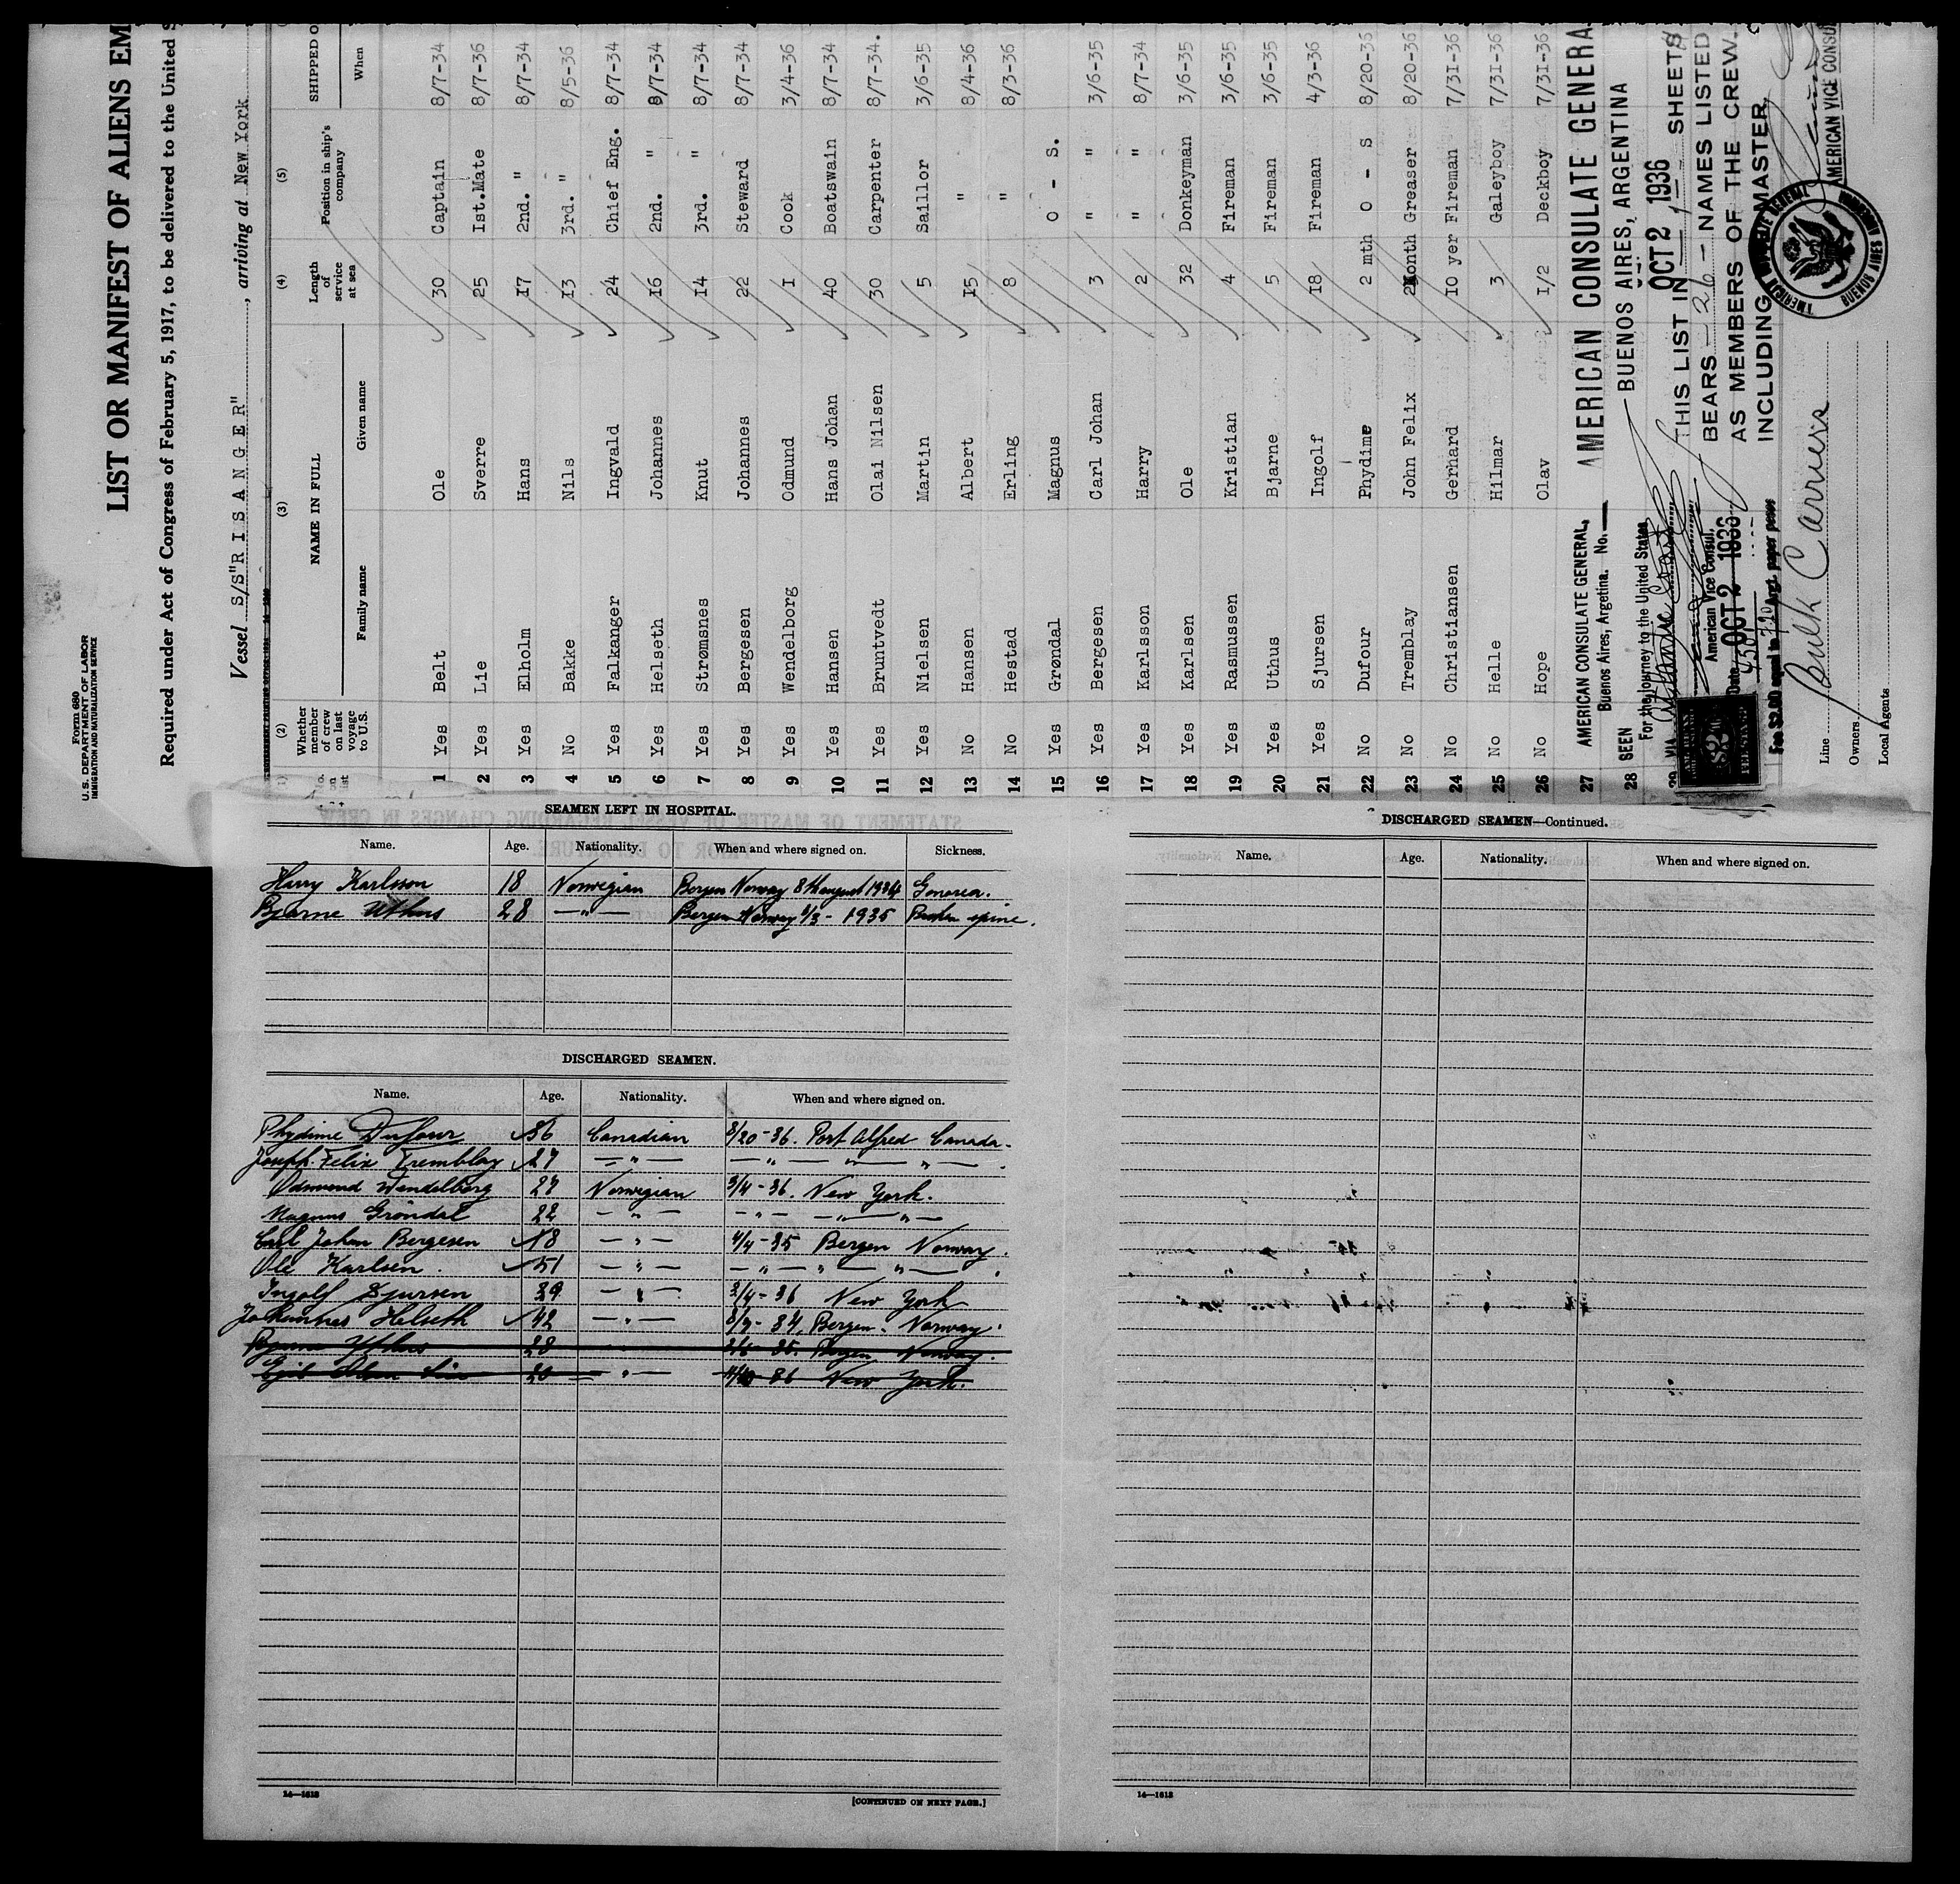 Form 680
U. S. DEPARTMENT OF LABOR
IMMIGRATION AND NATURALIZATION SERVICE
LIST OR MANIFEST OF ALIENS EM
Required under Act of Congress of February 5, 1917, to be delivered to the United S
Vessel S/S"R I S A N G E R", arriving at New York
(2) (3) (4) (5)
Whether member of crew on last voyage to U.S. NAME IN FULL Length of service at sea Position in ship's company SHIPPED O
Family name Given name When
1 Yes Belt Ole 30 Captain 8/7-34
2 Yes Lie Sverre 25 Ist.Mate 8/7-36
3 Yes Elholm Hans 17 2nd. " 8/7-34
4 No Bakke Nils 13 3rd. " 8/5-36
5 Yes Falkanger Ingvald 24 Chief Eng. 8/7-34
6 Yes Helseth Johannes 16 2nd. " 8/7-34
7 Yes Strømsnes Knut 14 3rd. " 8/7-34
8 Yes Bergesen Johannes 22 Steward 8/7-34
9 Yes Wendelborg Odmund 1 Cook 3/4-36
10 Yes Hansen Hans Johan 40 Boatswain 8/7-34
11 Yes Bruntvedt Olai Nilsen 30 Carpenter 8/7-34.
12 Yes Nielsen Martin 5 Saillor 3/6-35
13 No Hansen Albert 15 " 8/4-36
14 No Hestad Erling 8 " 8/3-36
15 Yes Grøndal Magnus O - S.
16 Yes Bergesen Carl Johan 3 " " 3/6-35
17 Yes Karlsson Harry 2 " " 8/7-34
18 Yes Karlsen Ole 32 Donkeyman 3/6-35
19 Yes Rasmussen Kristian 4 Fireman 3/6-35
20 Yes Uthus Bjarne 5 Fireman 3/6-35
21 Yes Sjursen Ingolf 18 Fireman 4/3-36
22 No Dufour Phydime 2 mth O - S 8/20-36
23 No Tremblay John Felix 2 month Greaser 8/20-36
24 No Christiansen Gerhard 10 yer Fireman 7/31-36
25 No Helle Hilmar 3 Galeyboy 7/31-36
26 No Hope Olav 1/2 Deckboy 7/31-36
27
28
29
AMERICAN CONSULATE GENERAL,
Buenos Aires, Argetina. No.
SEEN
For the journey to the United States
American Vice Consul,
Date OCT 2 1936
Fee $2.00 equal to 7.20 Arg. paper pesos
AMERICAN CONSULATE GENERA
BUENOS AIRES, ARGENTINA
OCT 2, 1936
THIS LIST IN 1 SHEETS
BEARS - 26 - NAMES LISTED
AS MEMBERS OF THE CREW.
INCLUDING MASTER,
AMERICAN VICE CONSU
BUENOS AIRES
Line
Owners Bulk Carriers
Local Agents
SEAMEN LEFT IN HOSPITAL.
Name. Age. Nationality. When and where signed on. Sickness.
Harry Karlsson 18 Norwegian Bergen Norway 8th august 1934 Gonorea.
Bjarne Uthus 28 — " — Bergen Norway 6/3 - 1935 Broken spine.
DISCHARGED SEAMEN.
Name. Age. Nationality. When and where signed on.
Phydime Dufour 36 Canadian 8/20-36. Port Alfred Canada.
Joseph Felix Tremblay 27 — " — — " — " — " —
Odmund Wendelborg 27 Norwegian 3/4-36. New York.
Magnus Gröndal 22 — " — — " — — " — " —
Carl Johan Bergesen 18 — " — 4/4-35 Bergen Norway.
Ole Karlsen. 51 — " — — " — " — " —
Ingolf Sjursen 39 — " — 3/4-36 New York
Johannes Helseth 42 — " — 8/7-34, Bergen. Norway.
Bjarne Uthus 28 3/6 35. Bergen Norway.
20 — " — 36 New York.
14—1618
[CONTINUED ON NEXT PAGE.]
DISCHARGED SEAMEN—Continued.
Name. Age. Nationality. When and where signed on.
14—1618